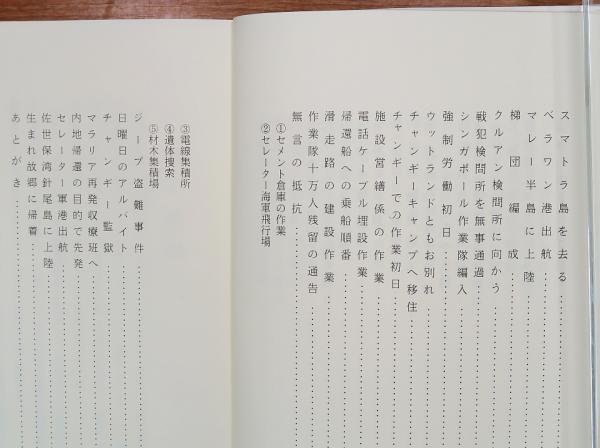 スマトラ島を去る
ベラワン港出航
マレー半島に上陸
梯団編成
クルアン検問所に向かう
戦犯検問所を無事通過
シンガポール作業隊編入
強制労働初日
ウットランドともお別れ
チャンギーキャンプへ移住
チャンギーでの作業初日
施設営繕係の作業
電話ケーブル埋設作業
帰還船への乗船順番
滑走路の建設作業
作業隊十万人残留の通告
無言の抵抗
①セメント倉庫の作業
②セレーター海軍飛行場
③電線集積所
④遺体捜索
⑤材木集積場
ジープ盗難事件
日曜日のアルバイト
チャンギー監獄
マラリア再発収療班へ
内地帰還の目的で先発
セレーター軍港出航
佐世保湾針尾島に上陸
生まれ故郷に帰着
あとがき